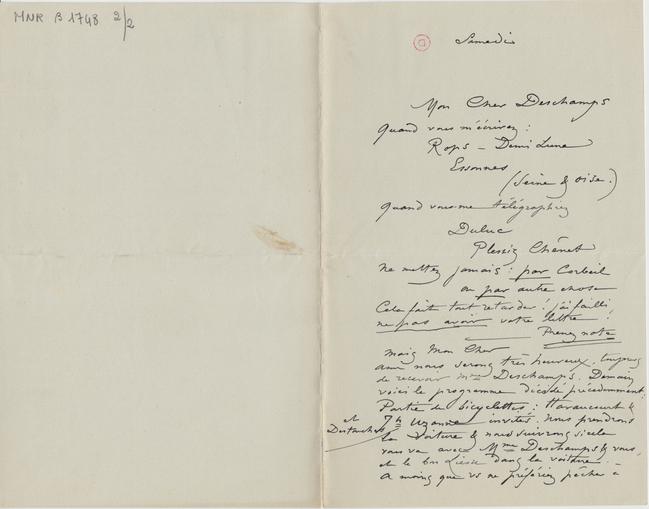 MNR B 1748 2/2
Samedi
Mon Cher Deschamps
Quand vous m'écrivez :
Rops – Demi Lune
Essonnes
(Seine & Oise.)
Quand vous me télégraphiez
Duluc
Plessis Chênet
Ne mettez jamais : par Corbeil
ou par autre chose
Cela fait tout retarder ! j'ai failli
ne pas avoir votre lettre !
Prenez note
Mais Mon Cher
ami nous serons très heureux, toujours
de recevoir Mme Deschamps. Demain
voici le programme décidé précédemment :
Partie de bicyclettes : Haraucourt &
et
Uzanne invités. Nous prendrons
la voiture & nous suivrons si cela
vous va avec Mme Deschamps & vous,
et le bon dans la voiture.
A moins que vs ne préfériez pêche à